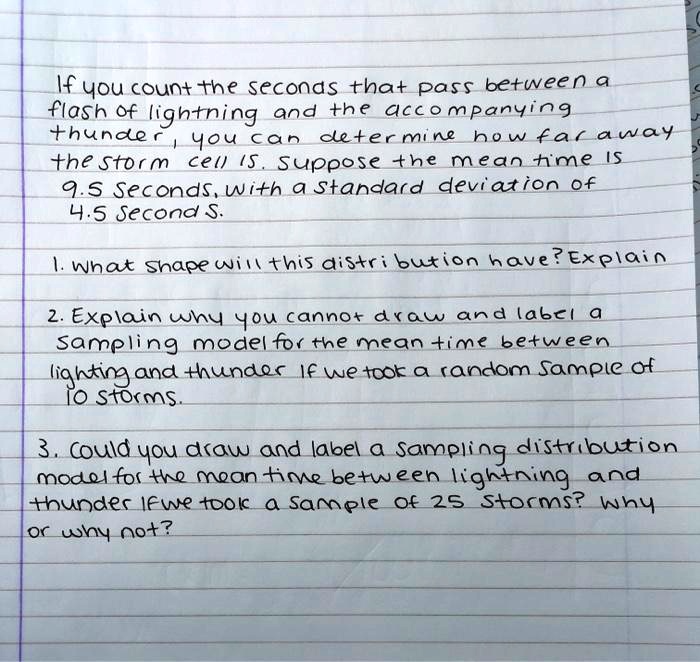 If you count the seconds that pass between a
flash of lightning and the accompanying
thunder, you can determine how far away
the storm cell is. Suppose the mean time is
9.5 seconds, with a standard deviation of
4.5 seconds.
1. What shape will this distribution have? Explain
2. Explain why you cannot draw and label a
sampling model for the mean time between
lighting and thunder if we took a random sample of
10 storms.
3. Could you draw and label a sampling distribution
model for the mean time between lightning and
thunder if we took a sample of 25 storms? Why
or why not?